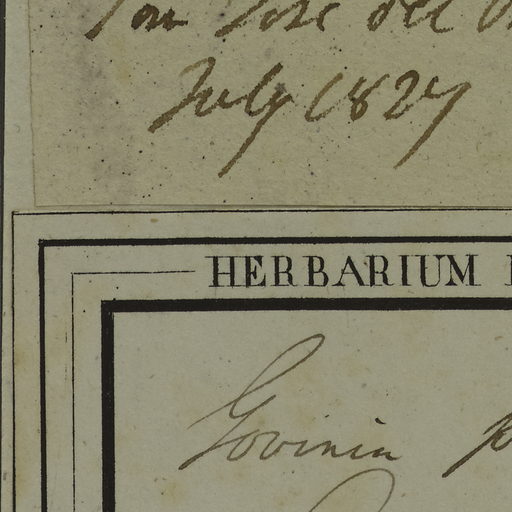 San José del
July 1827
HERBARIUM
Govinia